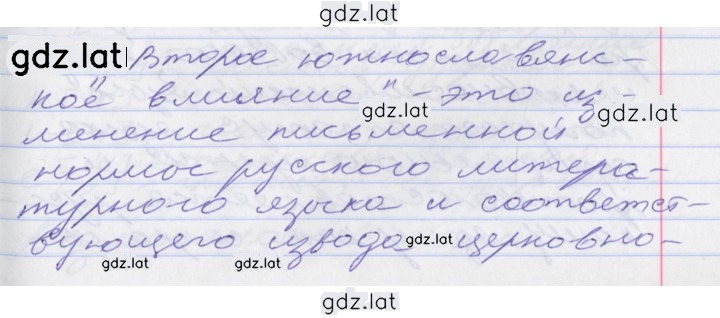 gdz.lat
gdz.lat
„Второе южнославянс-
кое влияние" - это из-
gdz.lat
gdz.lat
менение письменной
нормы русского литера-
турного языка и соответст-
вующего извода церковно-
gdz.lat
gdz.lat
gdz.lat